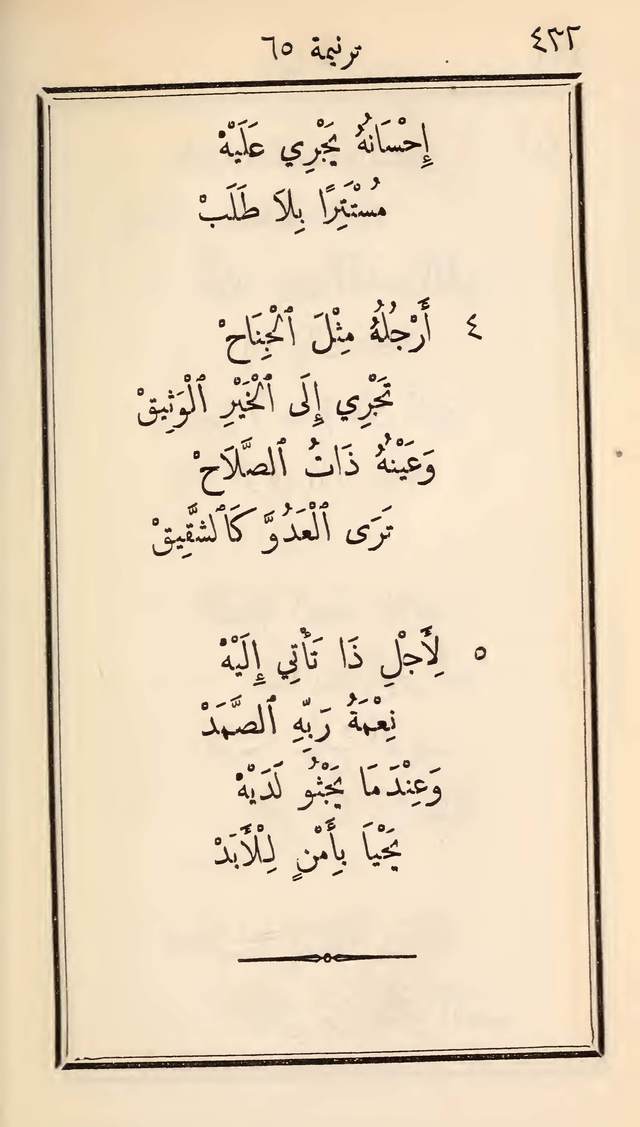 ٤٣٢
ترنيمة ٦٥
إِحْسَانُهُ يَجْرِي عَلَيْهْ
مُسْتَتِرًا بِلاَ طَلَبْ
٤ أَرْجُلُهُ مِثْلَ ٱلْجِنَاحْ
تَجْرِي إِلَى ٱلْخَيْرِ ٱلْوَثِيقْ
وَعَيْنُهُ ذَاتُ ٱلصَّلَاحْ
تَرَى ٱلْعَدُوَّ كَٱلشَّقِيقْ
٥ لِأَجْلِ ذَا تَأْتِي إِلَيْهْ
نِعْمَةُ رَبِّهِ ٱلصَّمَدْ
وَعِنْدَمَا يَجْثُو لَدَيْهْ
يَحْيَا بِأَمْنٍ لِلْأَبَدْ